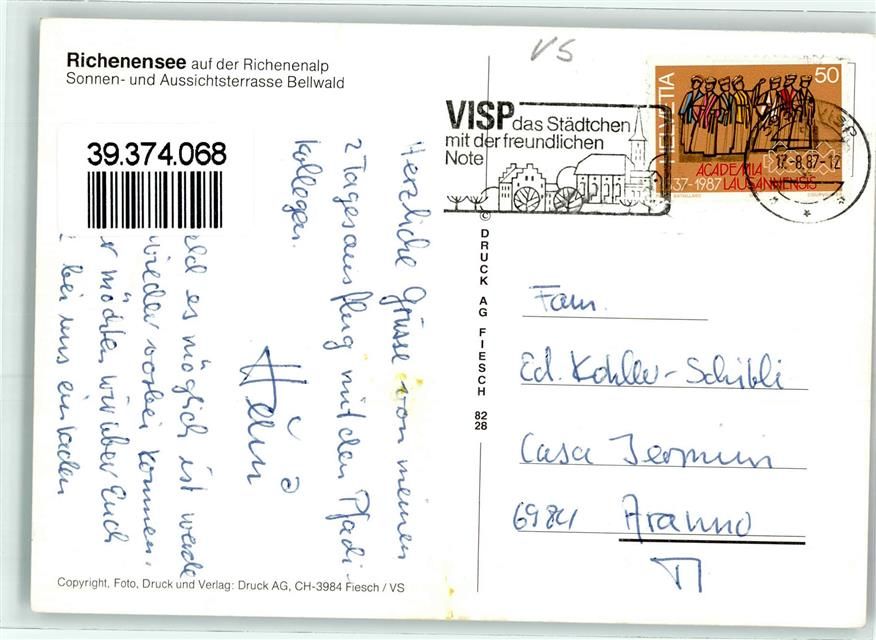 Richenensee auf der Richenenalp
Sonnen- und Aussichtsterrasse Bellwald
39.374.068
Herzliche Grüsse von meinen
2 Tagesausflug mit den Pfadi-
Kollegen.
Heini
eld es möglich ist werde
wieder vorbei kommen.
r möchten wir über Euch
bei uns einladen
Copyright, Foto, Druck und Verlag: Druck AG, CH-3984 Fiesch / VS
© DRUCK AG FIESCH 82 28
VS
VISP das Städtchen
mit der freundlichen
Note
HELVETIA
50
ACADEMIA
1537-1987 LAUSANNENSIS
VISP
17-8.87-12
Fam.
Ed. Kohler-Schibli
Casa
6984 Aranno
TI